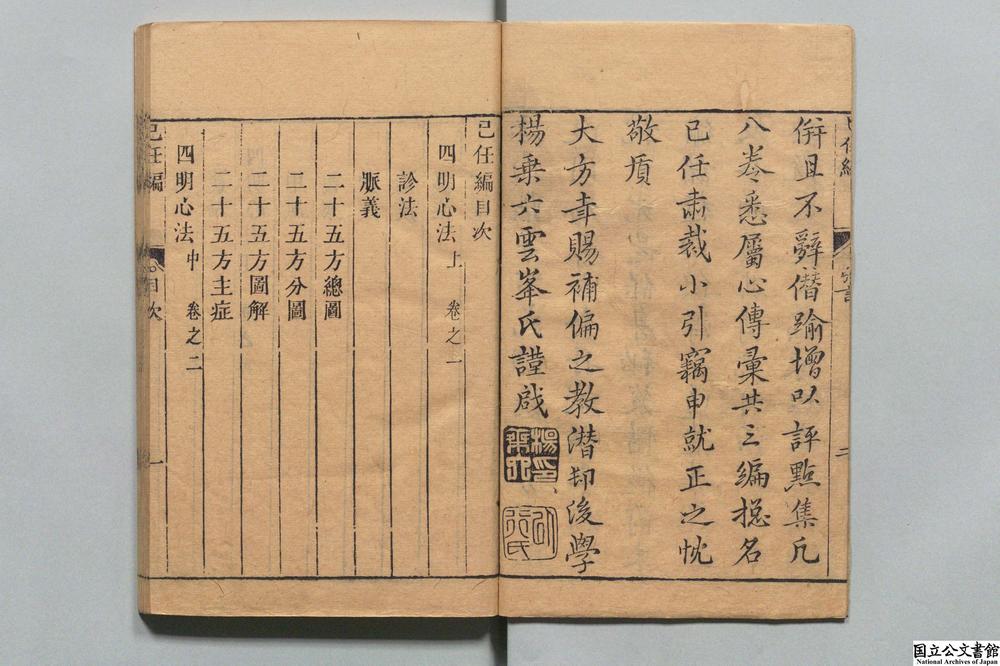 併且不辭僭踰增以評點集凡
八卷悉屬心傳彙共三編揔名
己任肅裁小引竊申就正之忱
敬質
大方幸賜補偏之教潜却後學
楊乗六雲峯氏謹啟
楊乗六印
己任編目次
四明心法上 卷之一
診法
脈義
二十五方總圖
二十五方分圖
二十五方圖解
二十五方主症
四明心法中 卷之二
己任編 目次 一
国立公文書館
National Archives of Japan